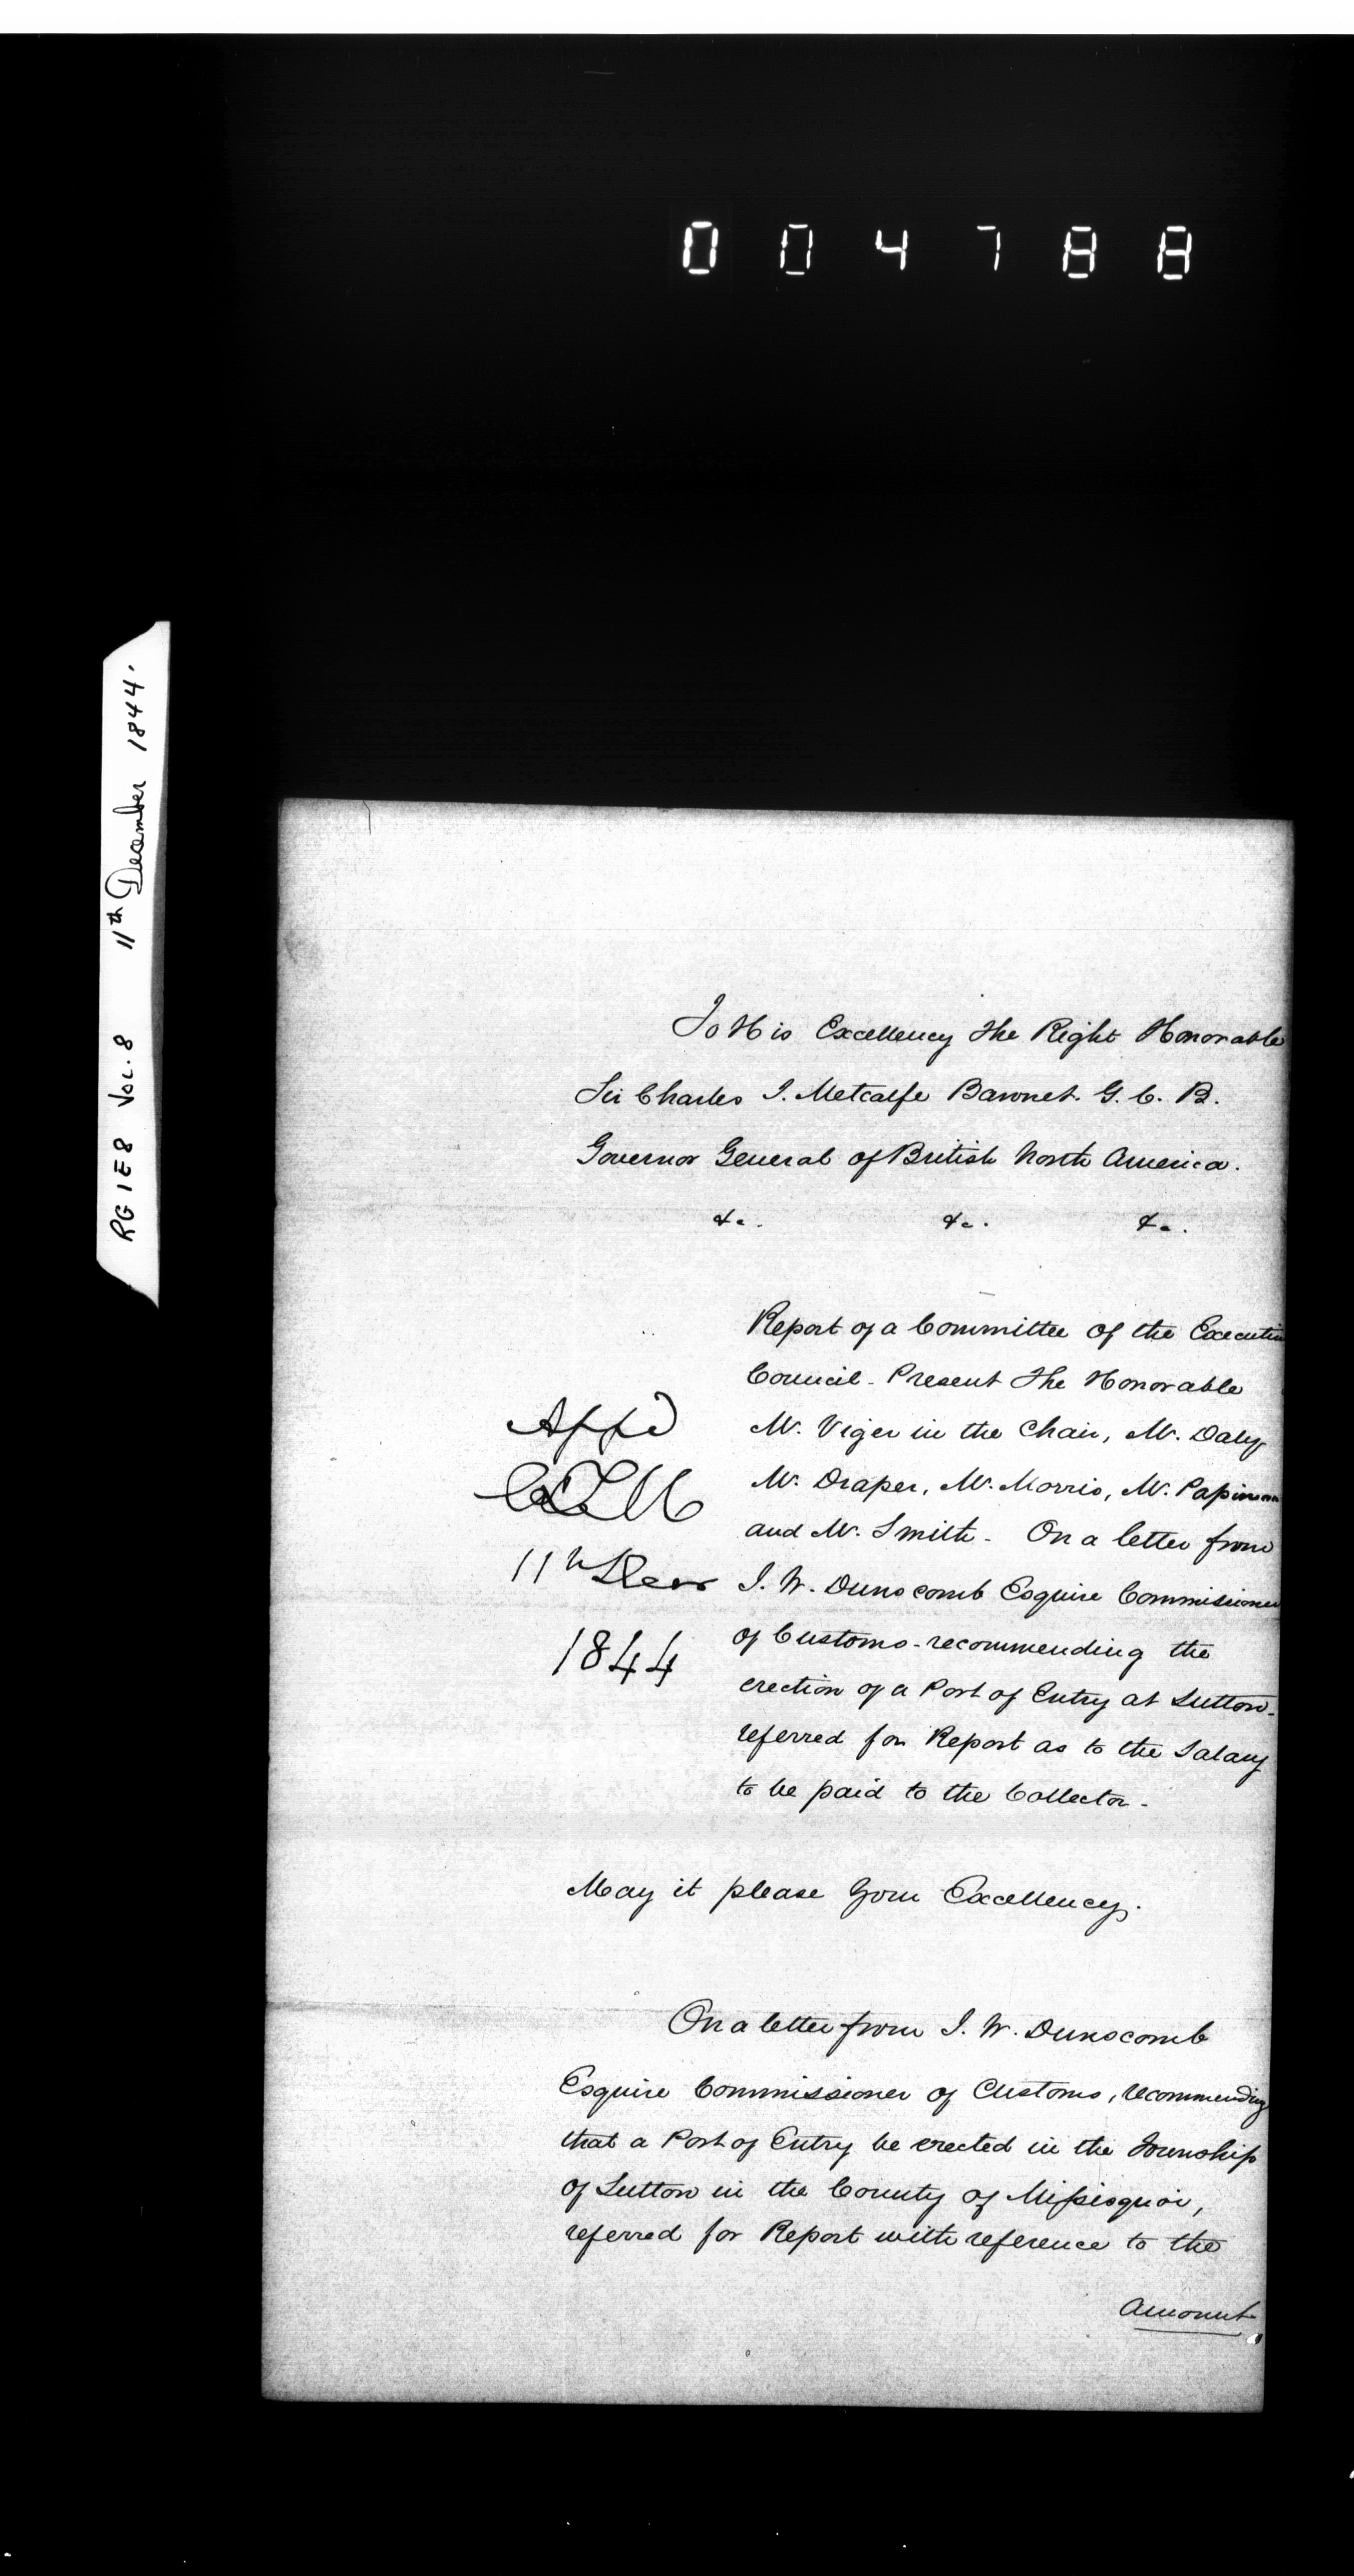 004788
RG 1 E8 Vol. 8 11th December 1844.
To His Excellency The Right Honorable
Sir Charles T. Metcalfe Baronet. G. C. B.
Governor General of British North America.
&c. &c. &c.
Report of a Committee of the Executive
Council - Present The Honorable
Mr. Viger in the Chair, Mr. Daly
Mr. Draper, Mr. Morris, Mr. Papineau
and Mr. Smith - On a letter from
J. W. Dunscomb Esquire Commissioner
of Customs - recommending the
erection of a Port of Entry at Sutton -
referred for Report as to the Salary
to be paid to the Collector -
Appd
CTM
11th Decr
1844
May it please Your Excellency.
On a letter from J. W. Dunscomb
Esquire Commissioner of Customs, recommending
that a Port of Entry be erected in the Township
of Sutton in the County of Missisquoi,
referred for Report with reference to the
amount